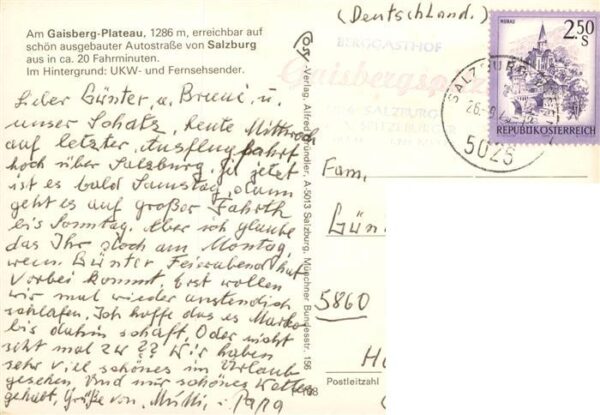 Am Gaisberg-Plateau, 1286 m, erreichbar auf
schön ausgebauter Autostraße von Salzburg
aus in ca. 20 Fahrminuten.
Im Hintergrund: UKW- und Fernsehsender.
Lieber Günter, u. u.
unser Schatz, heute Mittwoch
auf letzter Ausflugfahrt
hoch über Salzburg. Ja jetzt
ist es bald Samstag, dann
geht es auf großer Fahrth
bis Sonntag. Aber ich glaube
das Ihr doch am Montag,
wenn Günter Feierabend hat
vorbei kommt. Erst wollen
wir mal wieder anständich
schlafen. Ich hoffe das es Marko
bis dahin schaft. Oder nicht
seht mal zu ?? Wir haben
sehr viel schönes im Urlaub
gesehen. Und mir schönes Wetter
gehabt, Grüße von, Mutti, - Papa
Verlag, Alfred Gründler, A-5013 Salzburg, Münchner Bundesstr. 156
(Deutschland.)
BERGGASTHOF
Gaisbergspitze
SALZBURG
SPITZEBURGER
MURAU
2.50
S
REPUBLIK ÖSTERREICH
SALZBURG
5025
Fam.
Gün
5860
Postleitzahl